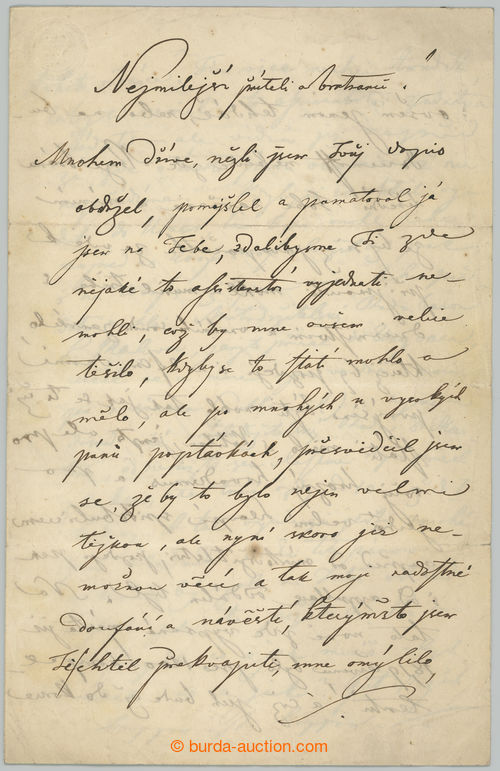 Nejmilejší příteli a bratranče!
Mnohem dříve, nežli jsem Tvůj dopis
obdržel, pomejšlel a pamatoval já
jsem na Tebe, zdalibysme Ti zde
nějaké to assistentství vyjednati ne-
mohli, což by mne ovšem velice
těšilo, kdyby se to státi mohlo a
mělo, ale po mnohých u vysokých
pánů poptávkách, přesvědčil jsem
se, že by to bylo nejen velmi
těžkou, ale nyní skoro již ne-
možnou věcí a tak moje radostné
doufání a návěstí, kterýmžto jsem
Tě chtěl překvapiti, mne omýlilo,
© burda-auction.com